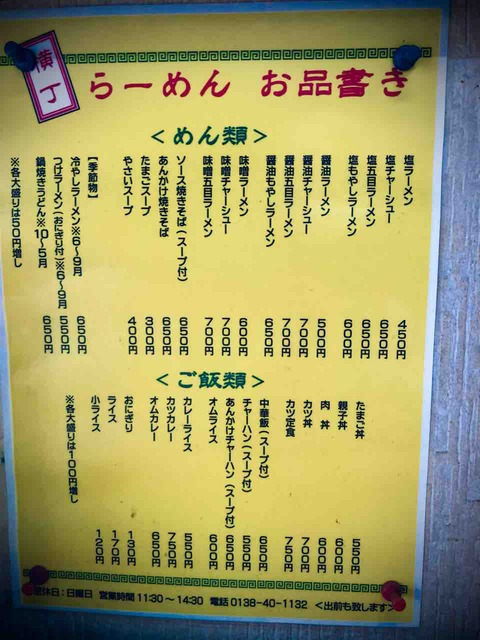 横丁
らーめん お品書き
<めん類>
塩ラーメン 450円
塩チャーシュー 650円
塩五目ラーメン 650円
塩もやしラーメン 600円
醤油ラーメン 500円
醤油チャーシュー 700円
醤油五目ラーメン 700円
醤油もやしラーメン 650円
味噌ラーメン 600円
味噌チャーシュー 700円
味噌五目ラーメン 700円
ソース焼きそば(スープ付) 650円
あんかけ焼きそば 650円
たまごスープ 300円
やさいスープ 400円
【季節物】
冷やしラーメン※6~9月 650円
つけラーメン(おにぎり付)※6~9月 550円
鍋焼きうどん※10~5月 650円
※各大盛りは50円増し
<ご飯類>
たまご丼 550円
親子丼 600円
肉 丼 600円
カツ丼 700円
カツ定食 750円
中華飯(スープ付) 650円
チャーハン(スープ付) 550円
あんかけチャーハン(スープ付) 650円
オムライス 600円
カレーライス 550円
カツカレー 750円
オムカレー 650円
おにぎり 130円
ライス 170円
小ライス 120円
※各大盛りは100円増し
定休日:日曜日 営業時間 11:30~14:30 電話 0138-40-1132 <出前も致します>